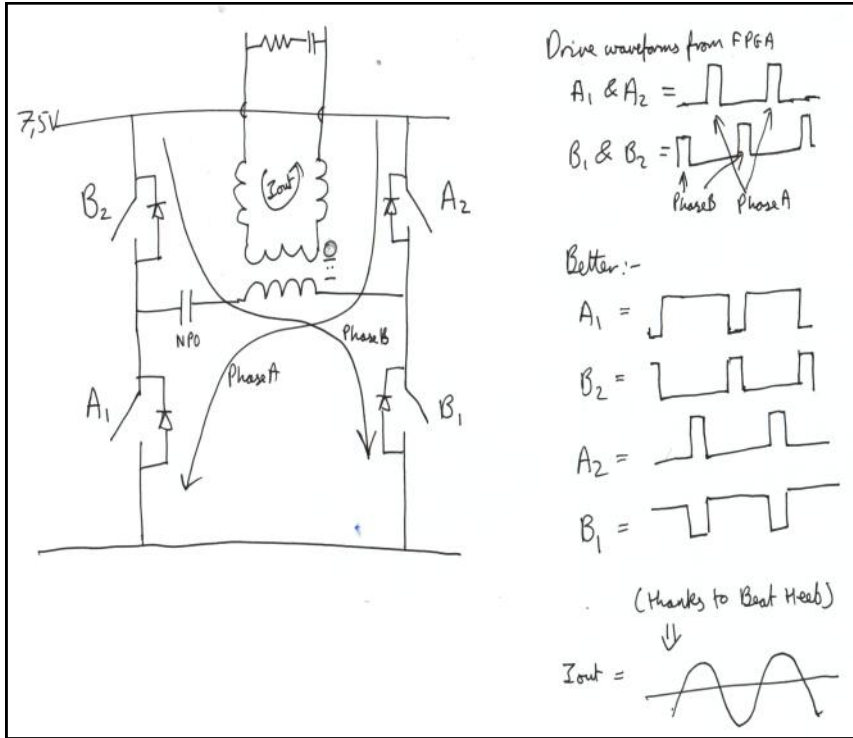 7,5V
B2
Iout
A2
NPO
Phase B
Phase A
A1
B1
Drive waveforms from FPGA
A1 & A2 =
B1 & B2 =
Phase B Phase A
Better:-
A1 =
B2 =
A2 =
B1 =
(thanks to Beat Heeb)
Iout =